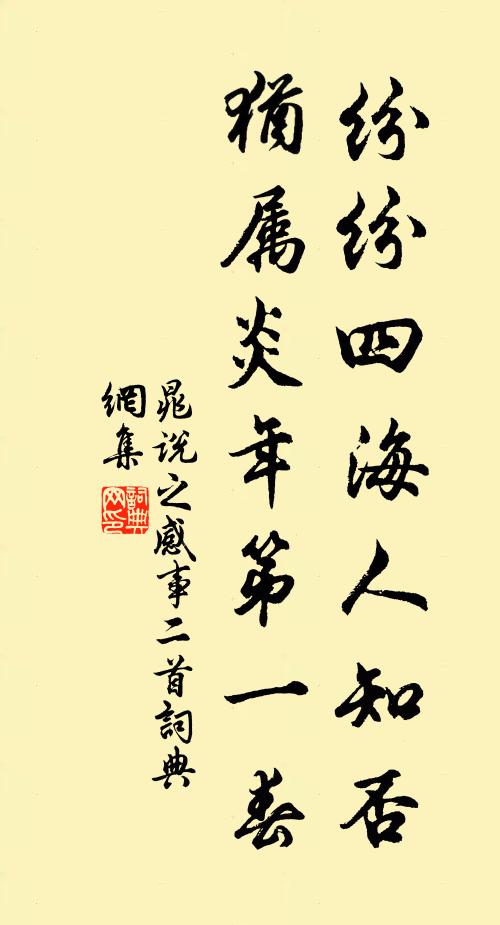 纷纷四海人知否
猶属炎年第一春
晁说之感事二首詞典
網集
詞典
网印